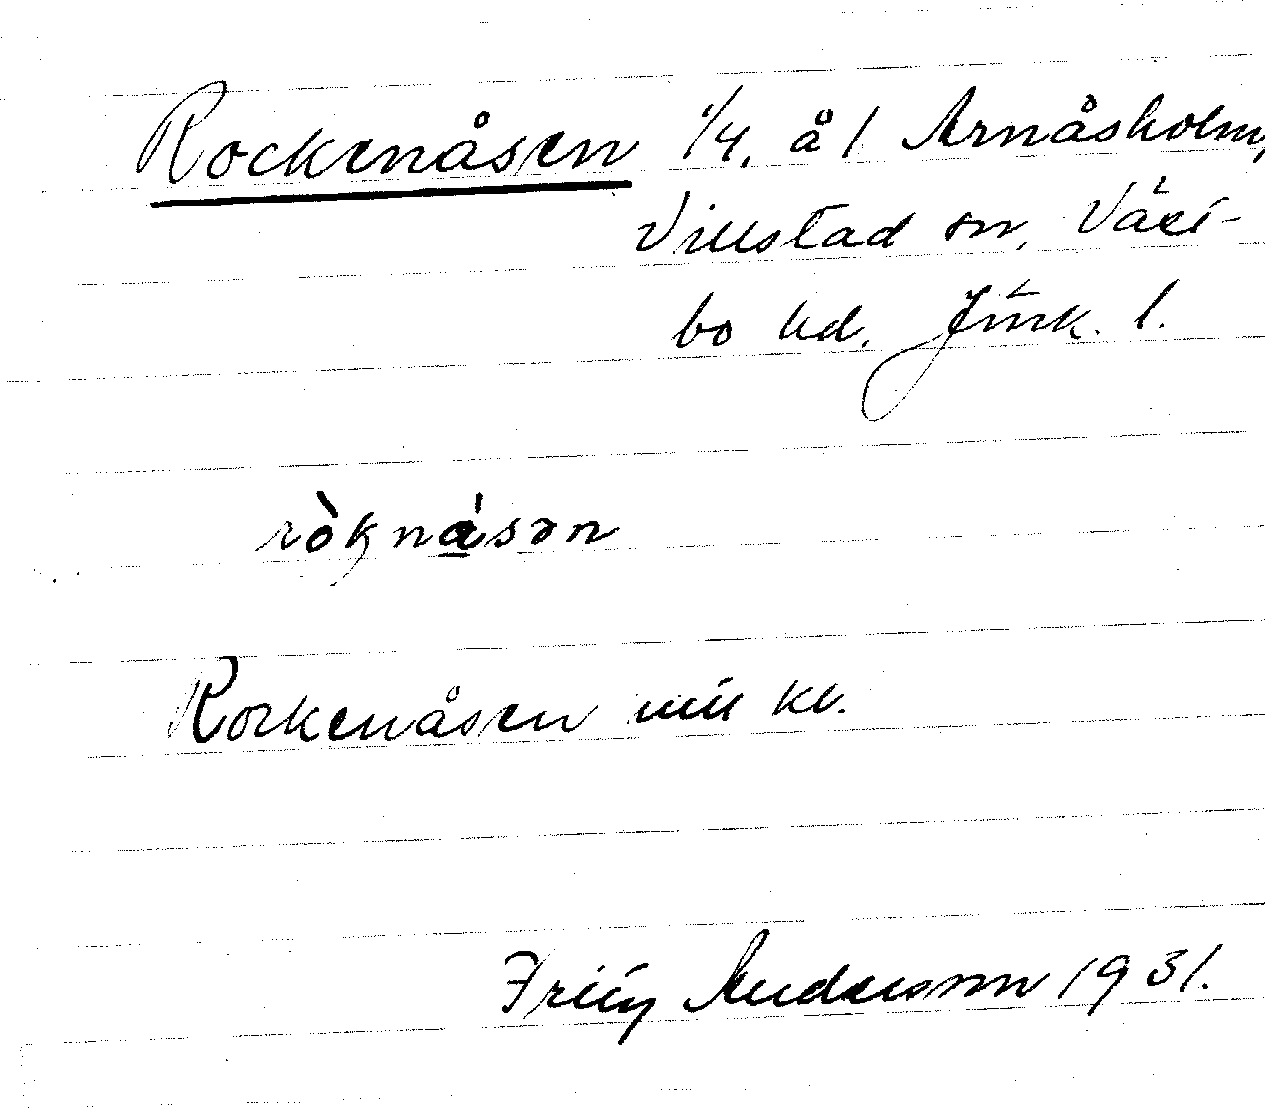 Rockenåsen 1/4, å l Arnåsholm,
Villstad sn, Väst-
bo hd. Jönk. l.
ròknásən
Rockenåsen
Andersson 1931.